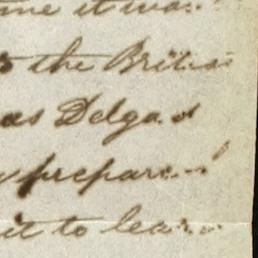 me it was
the British
as Delgad
prepared
it to learn